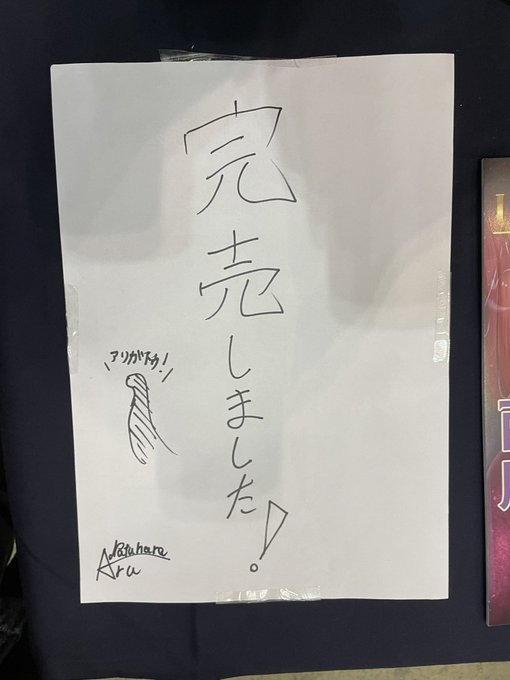 完売しました!
アリガトウ!
Aru